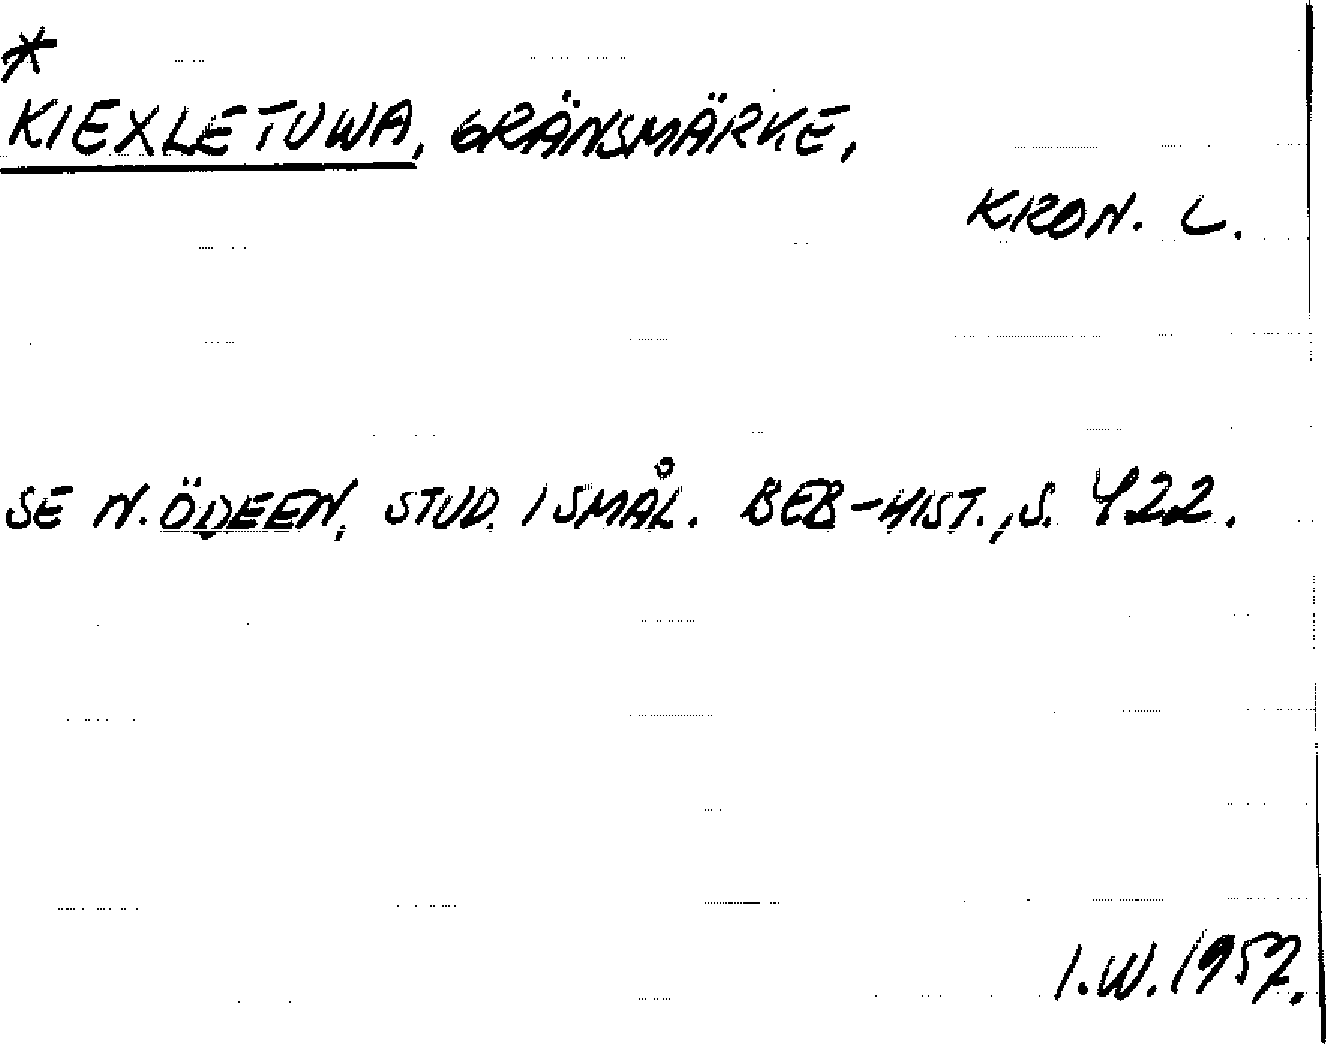 *
KIEXLETUWA, GRÄNSMÄRKE,
KRON. L.
SE N. ÖDEEN, STUD. I SMÅL. BEB-HIST., S. 422.
I.W. 1957.